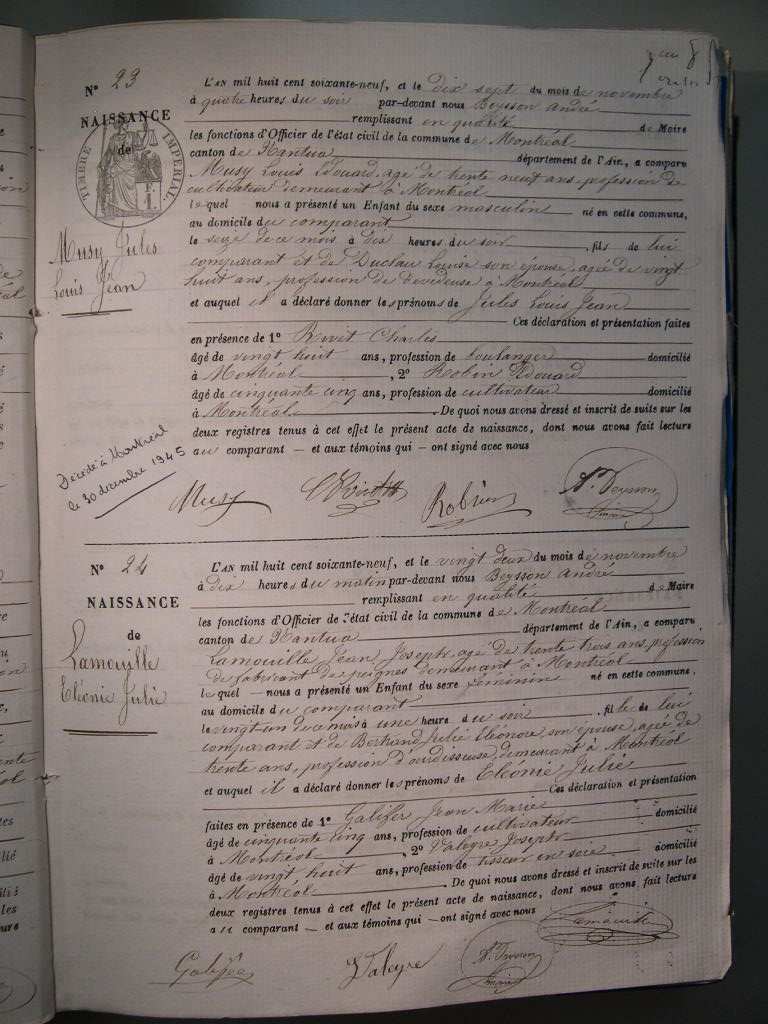 N° 23
NAISSANCE
de
TIMBRE IMPÉRIAL
Musy Jules
Louis Jean
L'AN mil huit cent soixante-neuf, et le dix sept du mois de novembre
à quatre heures du soir par-devant nous Beysson André
remplissant en qualité de Maire
les fonctions d'Officier de l'état civil de la commune de Montréal
canton de Nantua département de l'Ain, a comparu
Musy Louis Edouard, agé de trente neuf ans, profession de
cultivateur demeurant à Montréal
lequel nous a présenté un Enfant du sexe masculin né en cette commune,
au domicile du comparant
le seize de ce mois à dix heures du soir, fils de lui
comparant et de Duclau Louise son épouse, agée de vingt
huit ans, profession de dévideuse à Montréal
et auquel il a déclaré donner les prénoms de Jules Louis Jean
Ces déclaration et présentation faites
en présence de 1° Rivit Charles
âgé de vingt huit ans, profession de boulanger domicilié
à Montréal, 2° Robin Edouard
âgé de cinquante cinq ans, profession de cultivateur domicilié
à Montréal. De quoi nous avons dressé et inscrit de suite sur les
deux registres tenus à cet effet le présent acte de naissance, dont nous avons fait lecture
au comparant — et aux témoins qui — ont signé avec nous
Décédé à Montréal
le 30 décembre 1945
Musy Robin A. Beysson
N° 24
NAISSANCE
de
Lamouille
Eléonie Julie
L'AN mil huit cent soixante-neuf, et le vingt deux du mois de novembre
à dix heures du matin par-devant nous Beysson André
remplissant en qualité de Maire
les fonctions d'Officier de l'état civil de la commune de Montréal
canton de Nantua département de l'Ain, a comparu
Lamouille Jean Joseph, agé de trente trois ans, profession
de fabricant de peignes demeurant à Montréal
lequel — nous a présenté un Enfant du sexe féminin né en cette commune,
au domicile du comparant
le vingt-un de ce mois à une heure du soir, fille de lui
comparant et de Bertrand Julie Eléonore, son épouse, agée de
trente ans, profession d'ourdisseuse, demeurant à Montréal
et auquel il a déclaré donner les prénoms de Eléonie Julie
Ces déclaration et présentation
faites en présence de 1° Galifer Jean Marie
âgé de cinquante cinq ans, profession de cultivateur domicilié
à Montréal, 2° Valeyre Joseph
âgé de vingt huit ans, profession de tisseur en soie domicilié
à Montréal. De quoi nous avons dressé et inscrit de suite sur les
deux registres tenus à cet effet le présent acte de naissance, dont nous avons fait lecture
au comparant — et aux témoins qui — ont signé avec nous
Lamouille
Valeyre A. Beysson